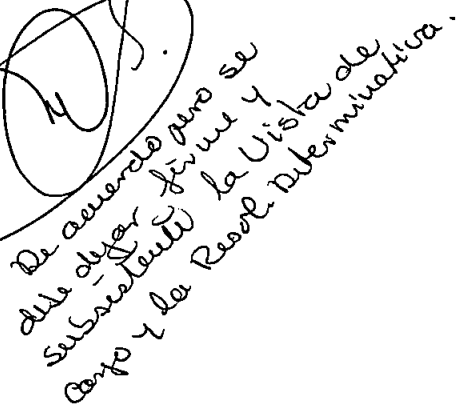 De acuerdo pero se
debe dejar firme y
subsistente la Vista de
cargo y la Resol. Determinativa.